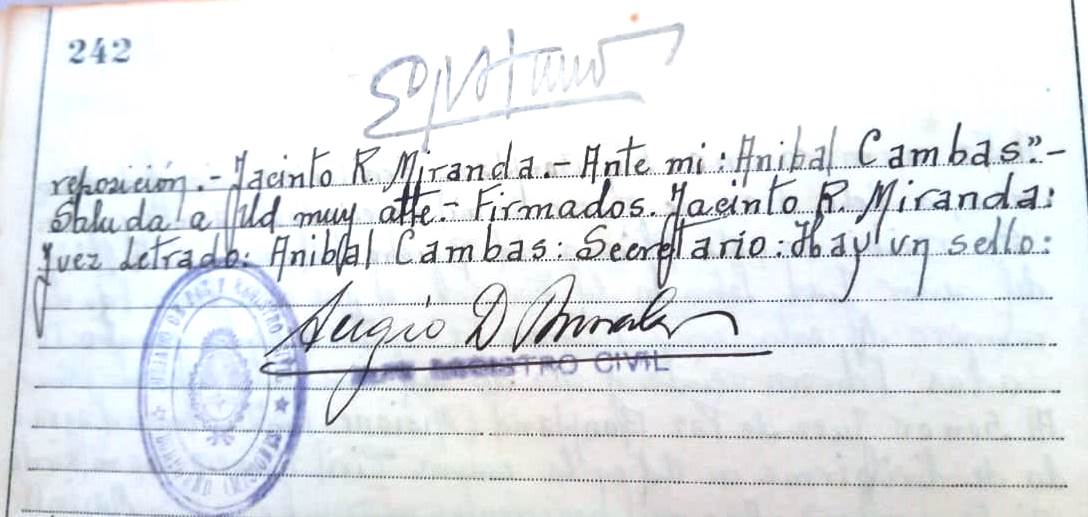 242
reposición.- Jacinto R. Miranda.- Ante mi: Anibal Cambas".-
Saluda a Ud muy atte.- Firmados. Jacinto R. Miranda:
Juez Letrado: Anibal Cambas: Secretario: Hay un sello:
Sergio D
REGISTRO CIVIL